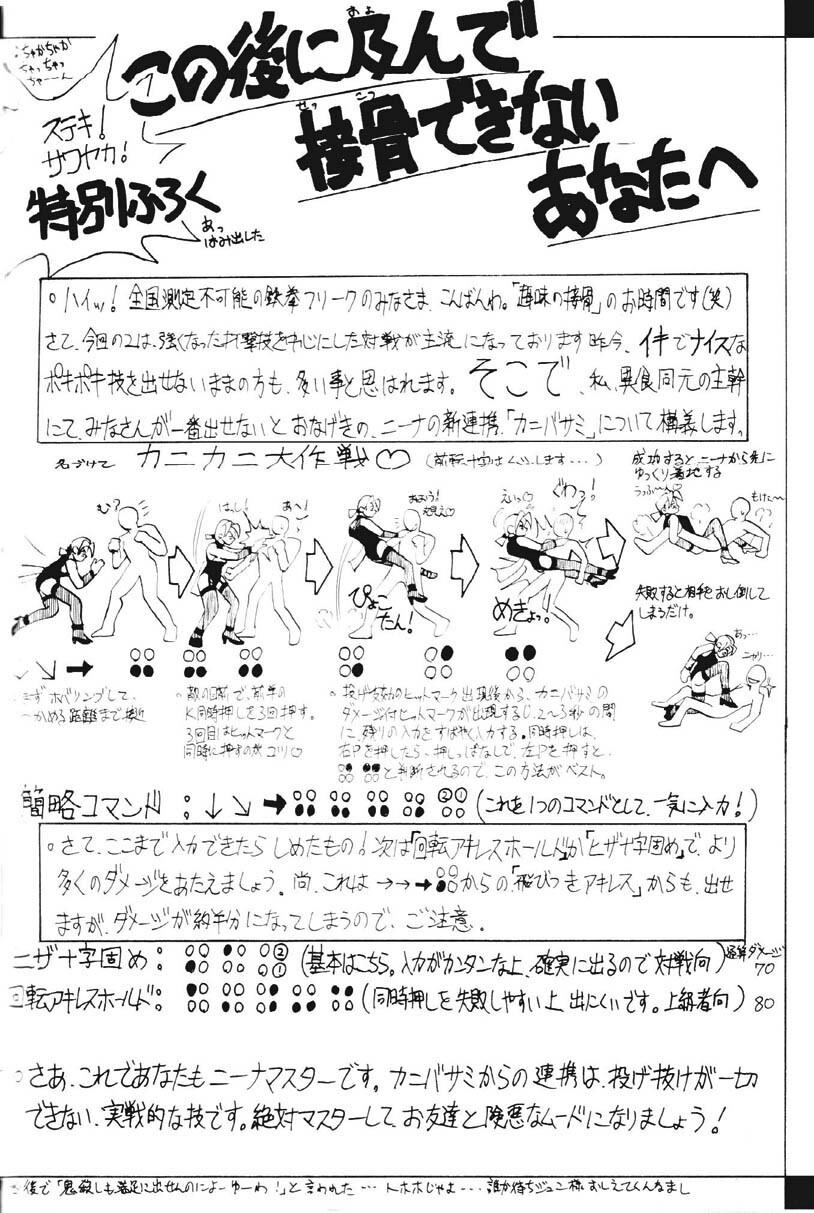 ちゃかちゃか
ちゃっちゃっ
ちゃーーん
この後に及んで
およ
接骨できない
せっこつ
あなたへ
ステキ!
サワヤカ!
特別ふろく
あっ
はみ出した
○ハイッ! 全国測定不可能の鉄拳フリークのみなさま、こんばんわ。「趣味の接骨」のお時間です(笑)
さて、今回の2は、強くなった打撃技を中心にした対戦が主流になっております昨今、イキでナイスな
ポキポキ技を出せないままの方も、多い事と思はれます。そこで、私、異食同元の主幹
にて、みなさんが一番出せないとおなげきの、ニーナの新連携、「カニバサミ」について構義します。
名づけて カニカニ大作戦♡
成功すると、ニーナから先に
ゆっくり着地する
うっふ〜ん
む?
はし!
あ〜!
えいっ♡
ぐわぁ!
ぴょこ
たん!
めきょっ。
失敗すると相手をおし倒して
しまうだけ。
あっ…
ニヤリ…
まずホバリングして、
つかめる距離まで接近
○敵の目前で、前半の
K同時押しを3回押す。
3回目はヒットマークと
同時に押すのがコツ♡
○投げ成功のヒットマーク出現後から、カニバサミの
ダメージ付ヒットマークが出現する0.2〜3秒の間
に、残りの入力をすばやく入力する。同時押しは、
右Pを押したら、押しっぱなしで、左Pを押すと、
と判断されるので、この方法がベスト。
簡略コマンド:↓↘➡ ②① (これを1つのコマンドとして、一気に入力!)
○さて、ここまで入力できたらしめたもの!次は「回転アキレスホールド」か「ヒザ十字固め」で、より
多くのダメージをあたえましょう。尚、これは→→➡からの「飛びつきアキレス」からも、出せ
ますが、ダメージが約半分になってしまうので、ご注意。
ヒザ十字固め: ②①① (基本はこちら。入力がカンタンな上、確実に出るので対戦向) ダメージ
70
回転アキレスホールド: (同時押しを失敗しやすい上、出にくいです。上級者向) 80
○さあ、これであなたもニーナマスターです。カニバサミからの連携は、投げ抜けが一切
できない、実戦的な技です。絶対マスターして、お友達と険悪なムードになりましょう!
後で「鬼殺しも満足に出せんのによーゆーわ!」と言われた…トホホじゃよ…誰か待ちジュン様おしえてくんなまし